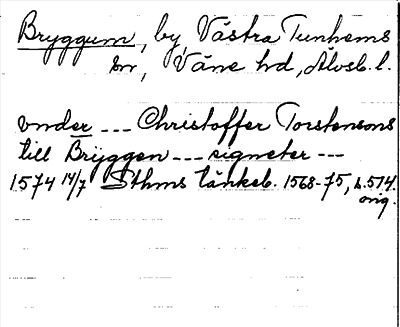 Bryggum, by, Västra Tunhems
sn, Väne hd, Älvsb. l.
vnder --- Christoffer Torstensons
till Brÿggen --- signeter ---
1574 14/7 Sthms tänkeb. 1568-75, s. 574.
orig.